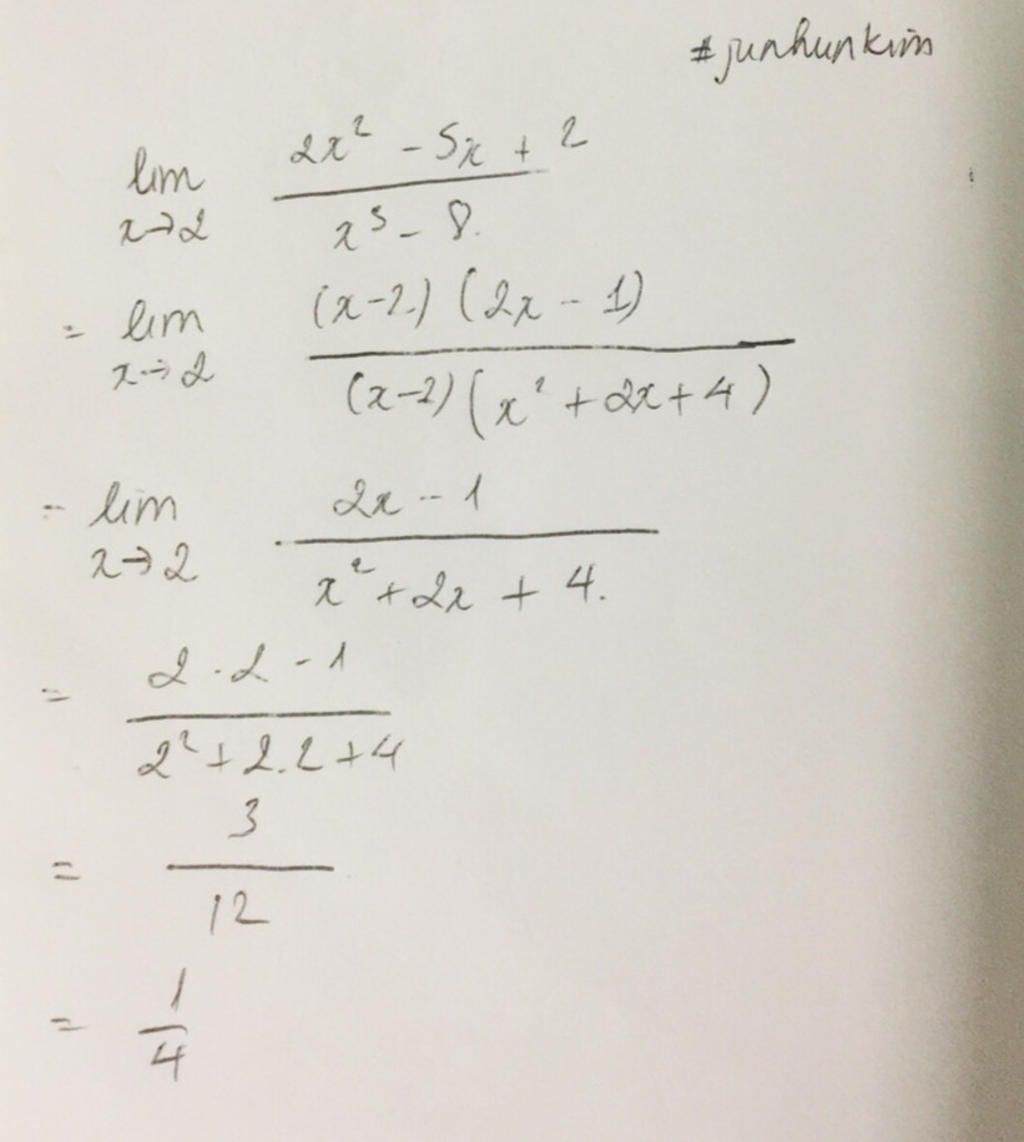 #junhunkim
lim x→2 (2x² - 5x + 2)/(x³ - 8.)
= lim x→2 ((x-2)(2x - 1))/((x-2)(x² + 2x + 4))
= lim x→2 (2x - 1)/(x² + 2x + 4.)
= (2 . 2 - 1)/(2² + 2.2 + 4)
= 3/12
= 1/4